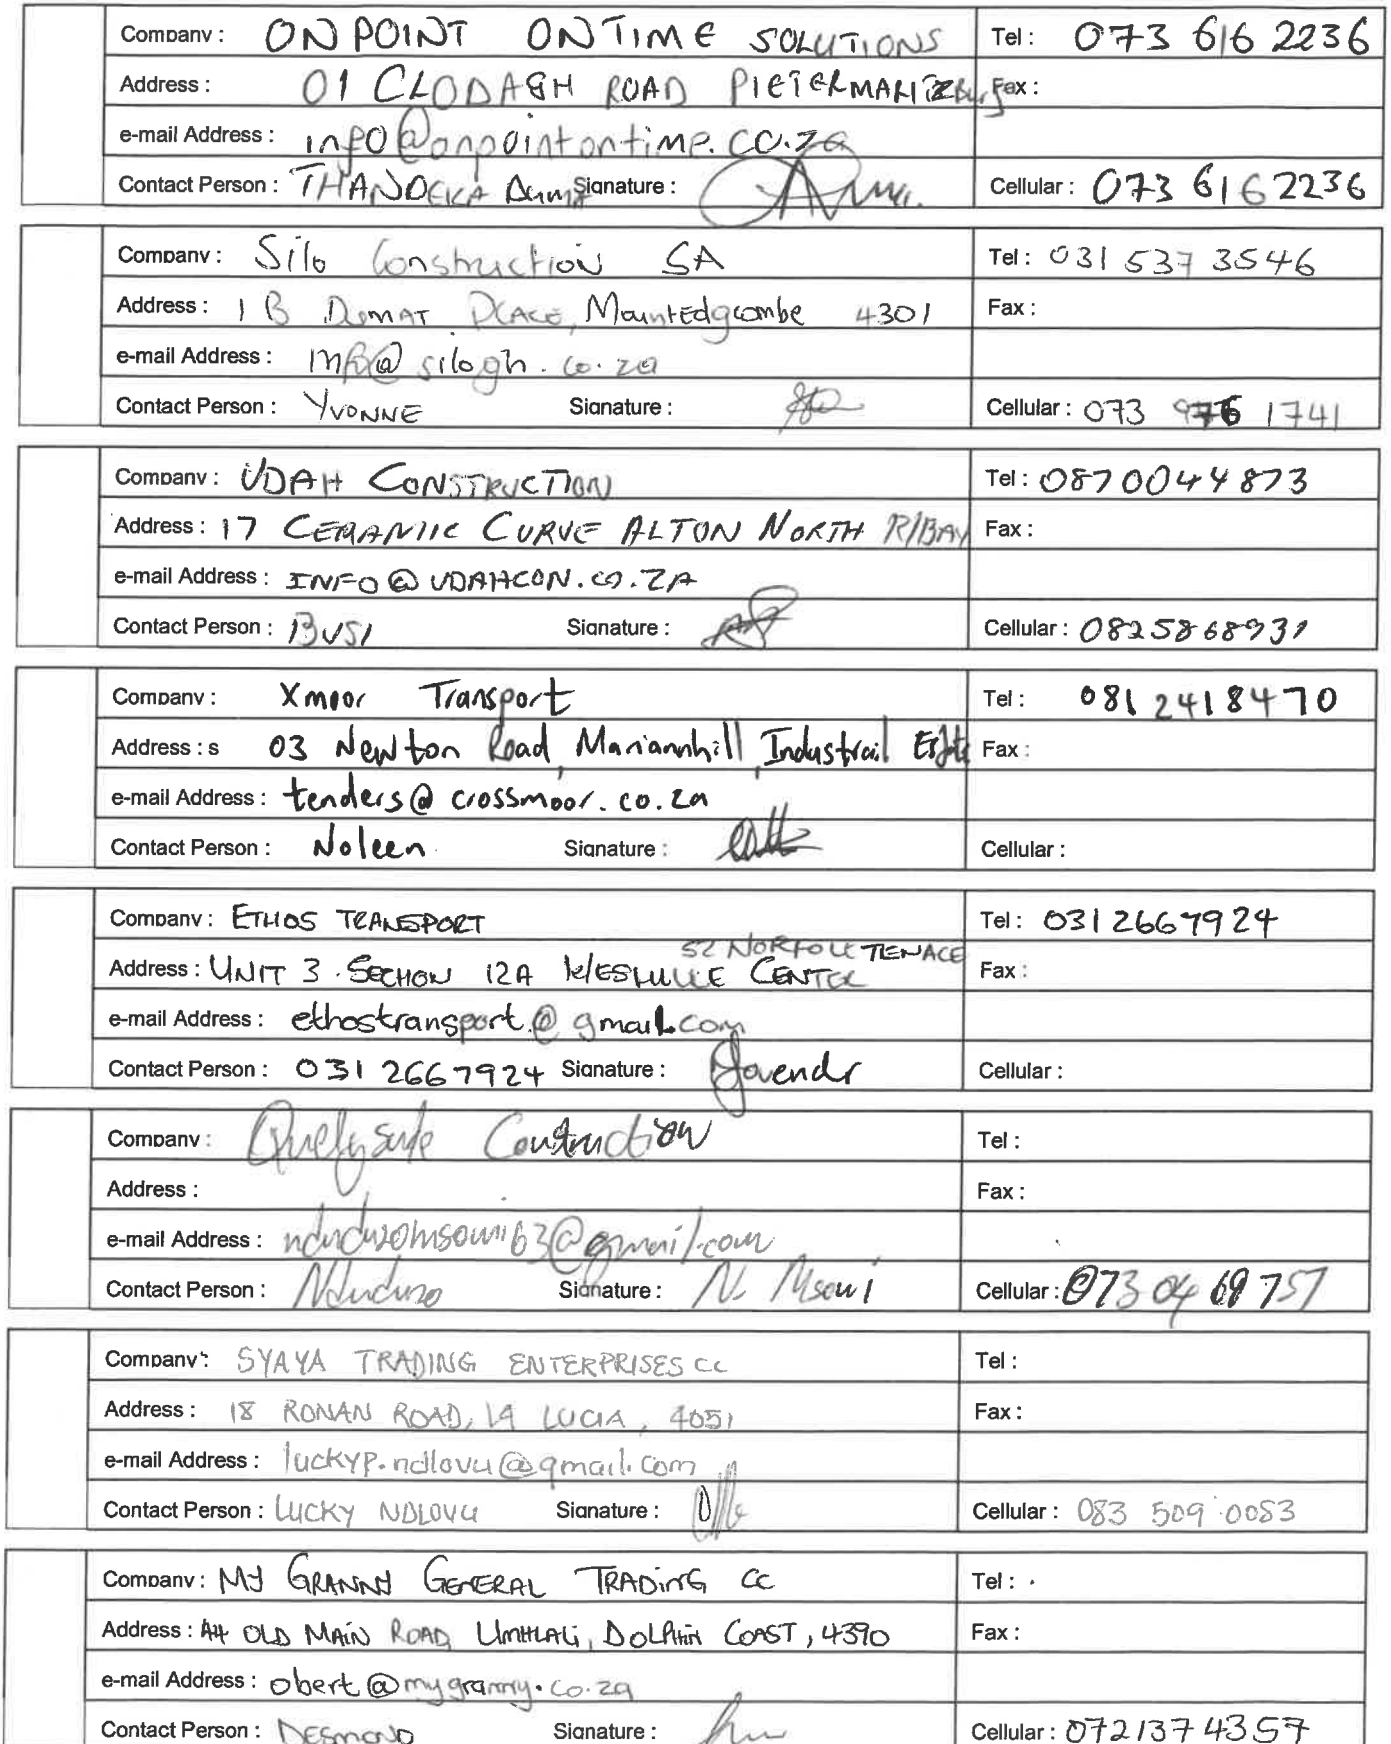 Company : ON POINT ON TIME SOLUTIONS Tel : 073 616 2236
Address : 01 CLODAGH ROAD PIETERMARITZBurg Fax :
e-mail Address : info@onpointontime.co.za
Contact Person : THANDEKA Signature : Cellular : 073 616 2236
Company : Silo Construction SA Tel : 031 537 3546
Address : 1 B DUMAT PLACE, MountEdgcombe 4301 Fax :
e-mail Address : info@silogh.co.za
Contact Person : YVONNE Signature : Cellular : 073 976 1741
Company : UDAH CONSTRUCTION Tel : 0870044873
Address : 17 CERAMIIC CURVE ALTON NORTH R/BAY Fax :
e-mail Address : INFO@UDAHCON.CO.ZA
Contact Person : BUSI Signature : Cellular : 0825868931
Company : Xmoor Transport Tel : 081 2418470
Address : s 03 Newton Road, Mariannhill, Industrail Fax :
e-mail Address : tenders@crossmoor.co.za
Contact Person : Noleen Signature : Cellular :
Company : ETHOS TRANSPORT Tel : 031 2667924
52 NORFOLK TERRACE
Address : UNIT 3 SECTION 12A WESTVILLE CENTER Fax :
e-mail Address : ethostransport@gmail.com
Contact Person : 031 2667924 Signature : Govendr Cellular :
Company : Construction Tel :
Address : Fax :
e-mail Address : nduduzomsomi63@gmail.com
Contact Person : Nduduzo Signature : N. Msomi Cellular : 073 04 69 757
Company : SYAYA TRADING ENTERPRISES CC Tel :
Address : 18 RONAN ROAD, LA LUCIA, 4051 Fax :
e-mail Address : luckyp.ndlovu@gmail.com
Contact Person : LUCKY NDLOVU Signature : Cellular : 083 509 0083
Company : MY GRANNY GENERAL TRADING CC Tel :
Address : A4 OLD MAIN ROAD, UMHLALI, DOLPHIN COAST, 4390 Fax :
e-mail Address : obert@mygranny.co.za
Contact Person : DESMOND Signature : Cellular : 0721374357